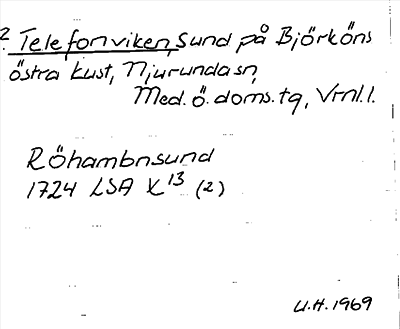 ? Telefonviken, Sund på Björköns
östra kust, Njurunda sn,
Med. ö. doms. tg, Vrnl. l.
Röhambnsund
1724 LSA X 13 (2)
U.H. 1969